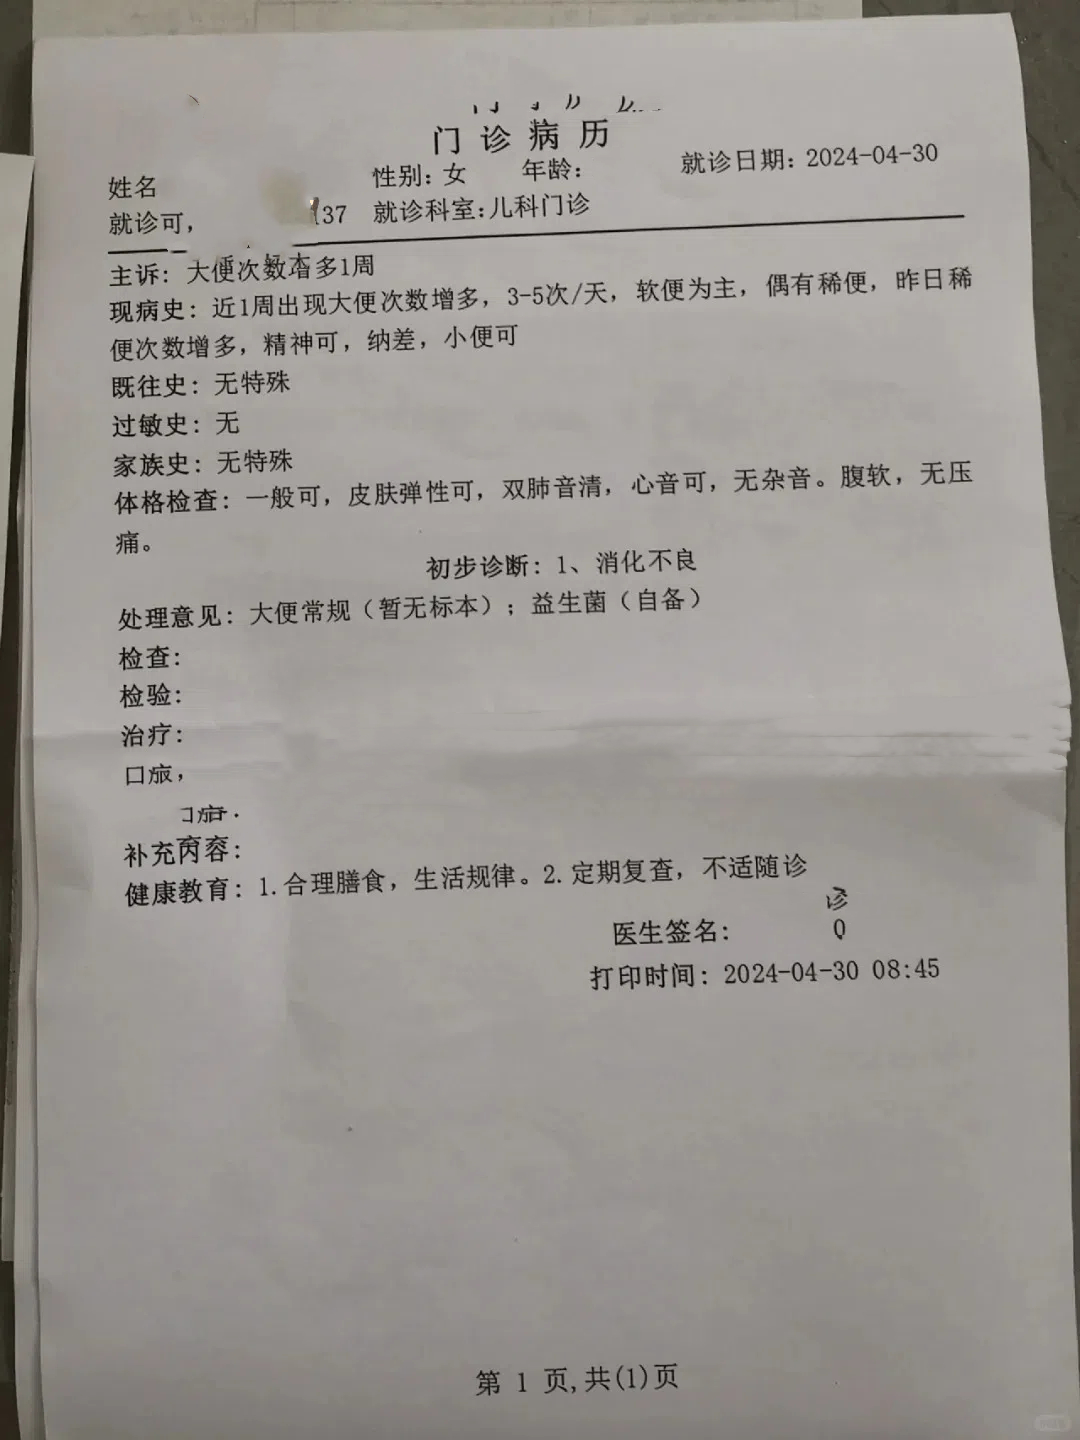 门诊病历
姓名 性别：女 年龄： 就诊日期：2024-04-30
就诊 37 就诊科室：儿科门诊
主诉：大便次数增多1周
现病史：近1周出现大便次数增多，3-5次/天，软便为主，偶有稀便，昨日稀
便次数增多，精神可，纳差，小便可
既往史：无特殊
过敏史：无
家族史：无特殊
体格检查：一般可，皮肤弹性可，双肺音清，心音可，无杂音。腹软，无压
痛。
初步诊断：1、消化不良
处理意见：大便常规（暂无标本）；益生菌（自备）
检查：
检验：
治疗：
补充内容：
健康教育：1.合理膳食，生活规律。2.定期复查，不适随诊
诊
医生签名：
打印时间：2024-04-30 08:45
第 1 页,共(1)页